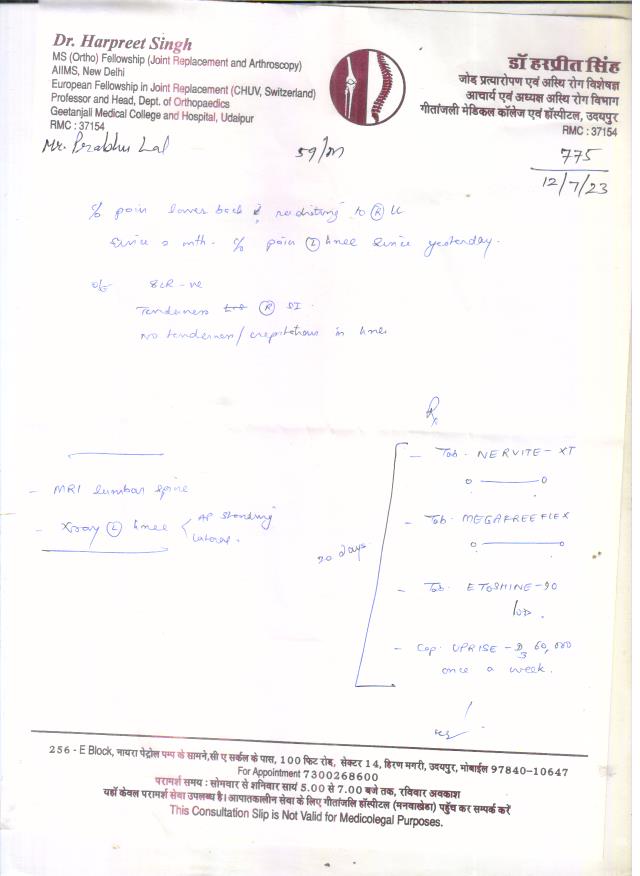 Dr. Harpreet Singh
MS (Ortho) Fellowship (Joint Replacement and Arthroscopy)
AIIMS, New Delhi
European Fellowship in Joint Replacement (CHUV, Switzerland)
Professor and Head, Dept. of Orthopaedics
Geetanjali Medical College and Hospital, Udaipur
RMC : 37154
डॉ हरप्रीत सिंह
जोड़ प्रत्यारोपण एवं अस्थि रोग विशेषज्ञ
आचार्य एवं अध्यक्ष अस्थि रोग विभाग
गीतांजली मेडिकल कॉलेज एवं हॉस्पीटल, उदयपुर
RMC : 37154
Mr. Prabhu Lal
59/M
775
12/7/23
c/o pain lower back radiating to (R) LL
since mth. c/o pain (L) knee since yesterday.
o/e SLR -ve
Tenderness (R) SI.
No tenderness/crepitations in knee
Rx
- MRI lumbar spine
- Xray (L) knee AP standing
lateral.
20 days
- Tab. NERVITE-XT
o — o
- Tab. MEGAFREEFLEX
o — o
- Tab. ETOSHINE-90
1 OD.
- Cap. UPRISE-D3 60,000
once a week.
256 - E Block, नायरा पेट्रोल पम्प के सामने,सी ए सर्कल के पास, 100 फिट रोड, सेक्टर 14, हिरण मगरी, उदयपुर, मोबाईल 97840-10647
For Appointment 7300268600
परामर्श समय : सोमवार से शनिवार सायं 5.00 से 7.00 बजे तक, रविवार अवकाश
यहाँ केवल परामर्श सेवा उपलब्ध है। आपातकालीन सेवा के लिए गीतांजलि हॉस्पीटल (मनवाखेड़ा) पहुँच कर सम्पर्क करें
This Consultation Slip is Not Valid for Medicolegal Purposes.